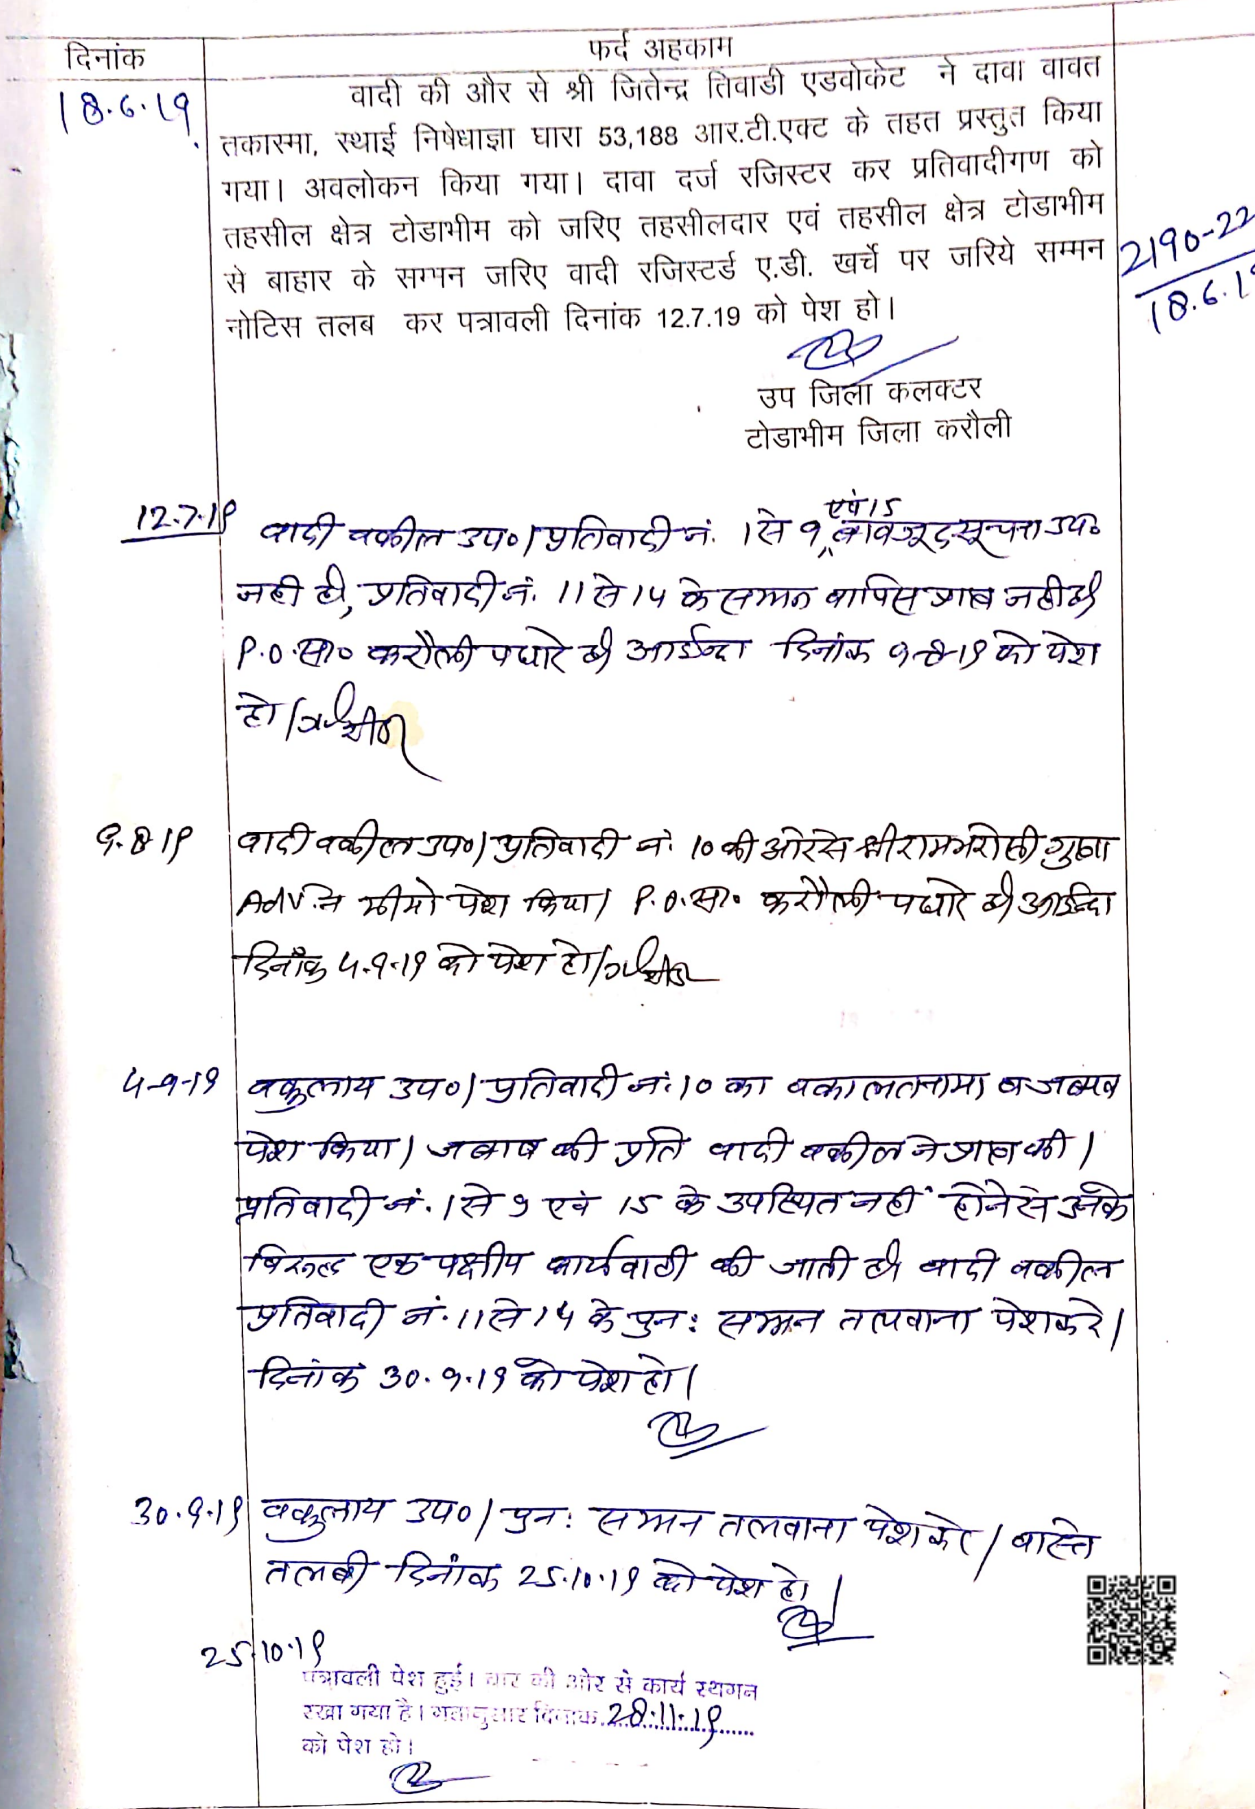 दिनांक
फर्द अहकाम
18.6.19
वादी की और से श्री जितेन्द्र तिवाडी एडवोकेट ने दावा वावत
तकास्मा, स्थाई निषेधाज्ञा घारा 53,188 आर.टी.एक्ट के तहत प्रस्तुत किया
गया। अवलोकन किया गया। दावा दर्ज रजिस्टर कर प्रतिवादीगण को
तहसील क्षेत्र टोडाभीम को जरिए तहसीलदार एवं तहसील क्षेत्र टोडाभीम
से बाहार के सम्मन जरिए वादी रजिस्टर्ड ए.डी. खर्चे पर जरिये सम्मन
नोटिस तलब कर पत्रावली दिनांक 12.7.19 को पेश हो।
2190-22
18.6.19
उप जिला कलक्टर
टोडाभीम जिला करौली
12.7.19
एवं 15
वादी वकील उप०। प्रतिवादी नं. 1 से 9, बावजूद सूचना उप०
नही है, प्रतिवादी नं. 11 से 14 के सम्मन वापिस प्राप्त नही है।
P.O. सा० करौली पधारे है। आईन्दा दिनांक 9-8-19 को पेश
हो।
9.8.19
वादी वकील उप०। प्रतिवादी नं. 10 की ओर से श्री रामभरोसी गुप्ता
Adv. ने मीमो पेश किया। P.O. सा० करौली पधारे है। आईन्दा
दिनाँक 4.9.19 को पेश हो।
4-9-19
वकुलाय उप०। प्रतिवादी नं. 10 का वकालतनामा व जबाव
पेश किया। जबाव की प्रति वादी वकील ने प्राप्त की।
प्रतिवादी नं. 1 से 9 एवं 15 के उपस्थित नहीं होने से उनके
विरूद्ध एक पक्षीय कार्यवाही की जाती है। वादी वकील
प्रतिवादी नं. 11 से 14 के पुन: सम्मन तलवाना पेश करे।
दिनांक 30.9.19 को पेश हो।
30.9.19
वकुलाय उप०। पुन: सम्मन तलवाना पेश करे। वास्ते
तलबी दिनांक 25.10.19 को पेश हो।
25.10.19
पत्रावली पेश हुई। बार की ओर से कार्य स्थगन
रखा गया है। गतानुसार दिनांक 28.11.19
को पेश हो।